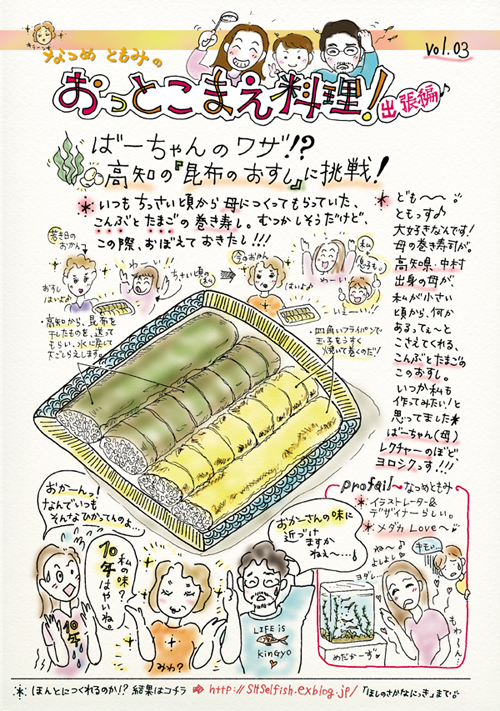 なつめ ともみの
vol.03
おっとこまえ料理!
出張編♪
ばーちゃんのワザ!?
高知の『昆布のおすし』に挑戦!
* いつもちっさい頃から 母につくってもらっていた、
こんぶと たまごの 巻き寿し。むつかしそうだけど、
この際、おぼえておきたし!!!
* ども〜〜
ともっす♪
大好きなんです!
母の巻き寿司が。
高知県、中村
出身の母が、
私が小さい
頃から、何か
あるってぇ〜と
こさえてくれる、
こんぶとたまごの
このおすし。
いつか私も
作ってみたい!と
思ってました*
ばーちゃん(母)
レクチャーのほど、
ヨロシクっす.!!!
若き日の
おかん
おすし
はいよ
わーい!!
ちっさい頃の
私
今のおかん
はいよ
わーい
私
息子も
いえーい!!
高知から、昆布を
干したものを、送って
もらい、水に戻して
大ごしらえします。
四角いフライパンで
玉子をうすく
焼いて巻くのだ!
おかーんっ!
なんでいつも
そんなひかってんのよ…
私の味?
10年
はやいね。
おかーさんの味に
近づけ
ますか
ねぇ〜…
10年
みわ?
LIFE is
KinGyo
profail〜なつめともみ
* イラストレーター&
デザイナーらしい。
* メダカ Love〜
ね〜♪
よしよし
ヨダレ…
キモい…
もわ〜ん…
めだかーず
* ほんとにつくれるのか!? 結果はコチラ ⇒ http://SHSelfish.exblog.jp/ 「ほしのさかなにっき」まで